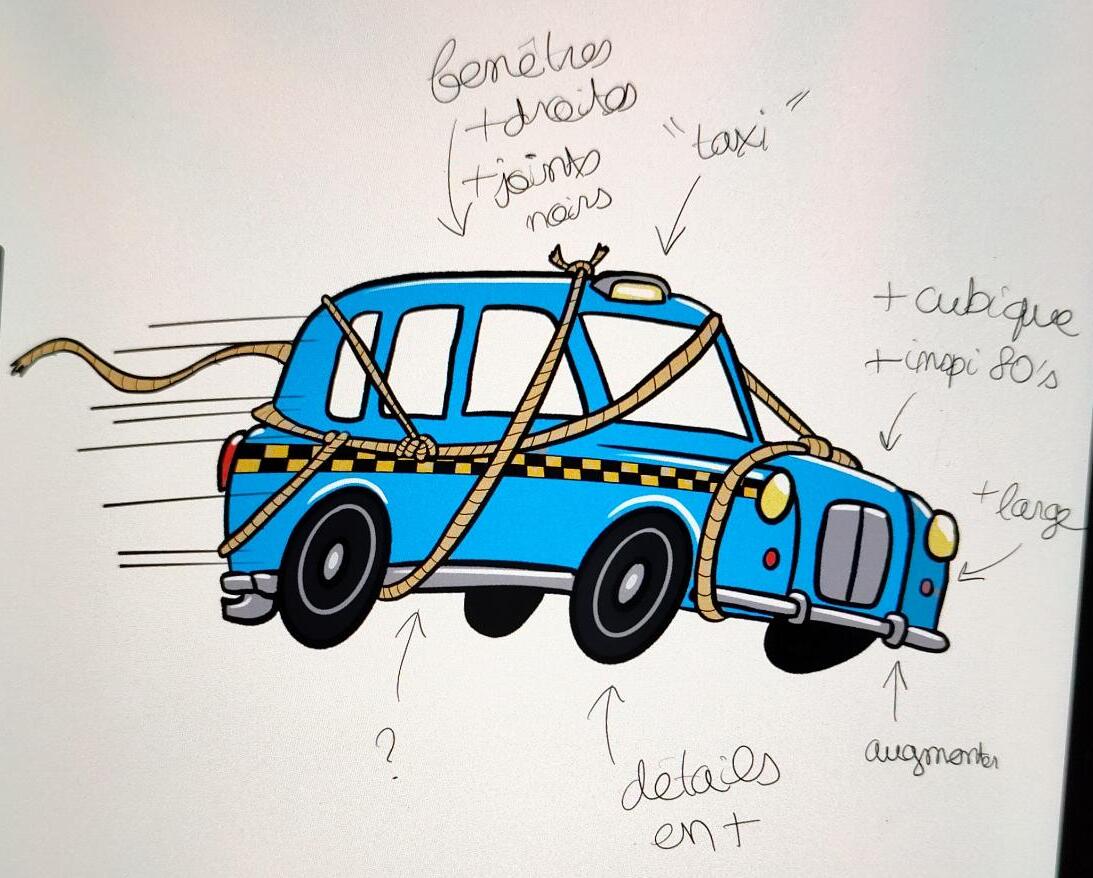 fenêtres
+ droites
+ joints
noirs
"taxi"
+ cubique
+ inspi 80's
+ large
?
détails
en +
augmenter